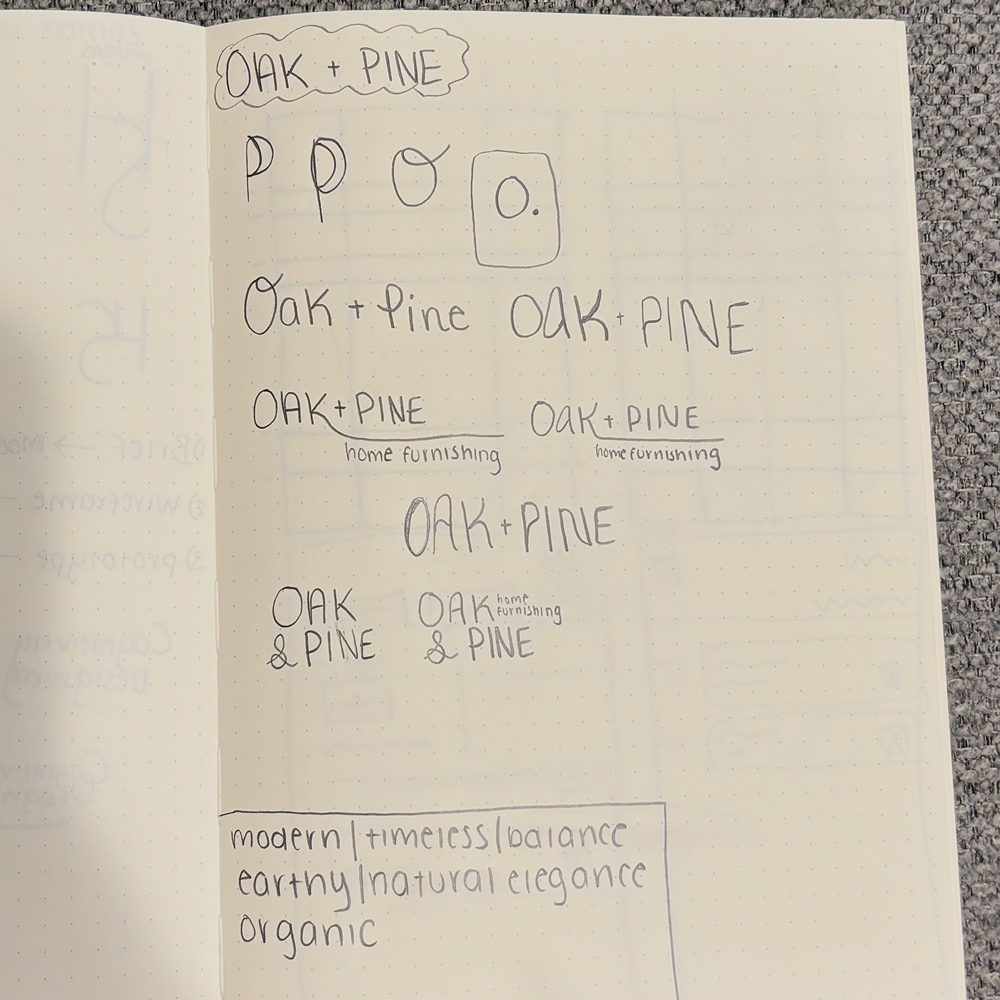 OAK + PINE
P P O O.
Oak + Pine OAK + PINE
OAK + PINE OAK + PINE
home furnishing home furnishing
OAK + PINE
OAK OAK home furnishing
& PINE & PINE
modern | timeless | balance
earthy | natural elegance
organic